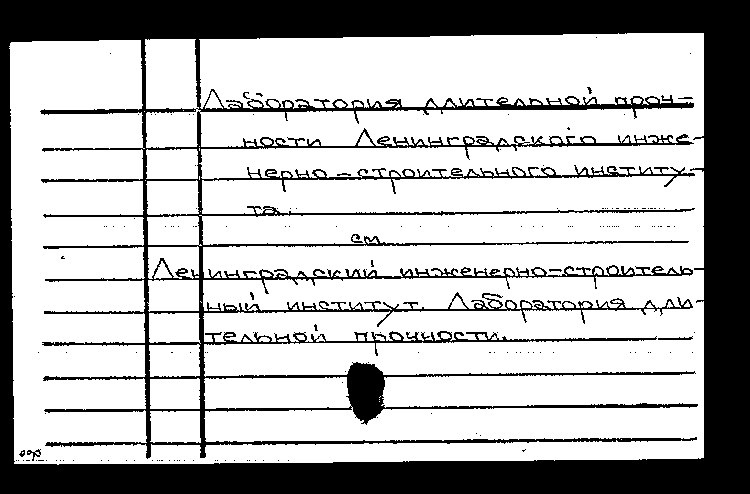 Лаборатория длительной проч-
ности Ленинградского инже-
нерно-строительного институ-
та.
см.
Ленинградский инженерно-строитель-
ный институт. Лаборатория дли-
тельной прочности.